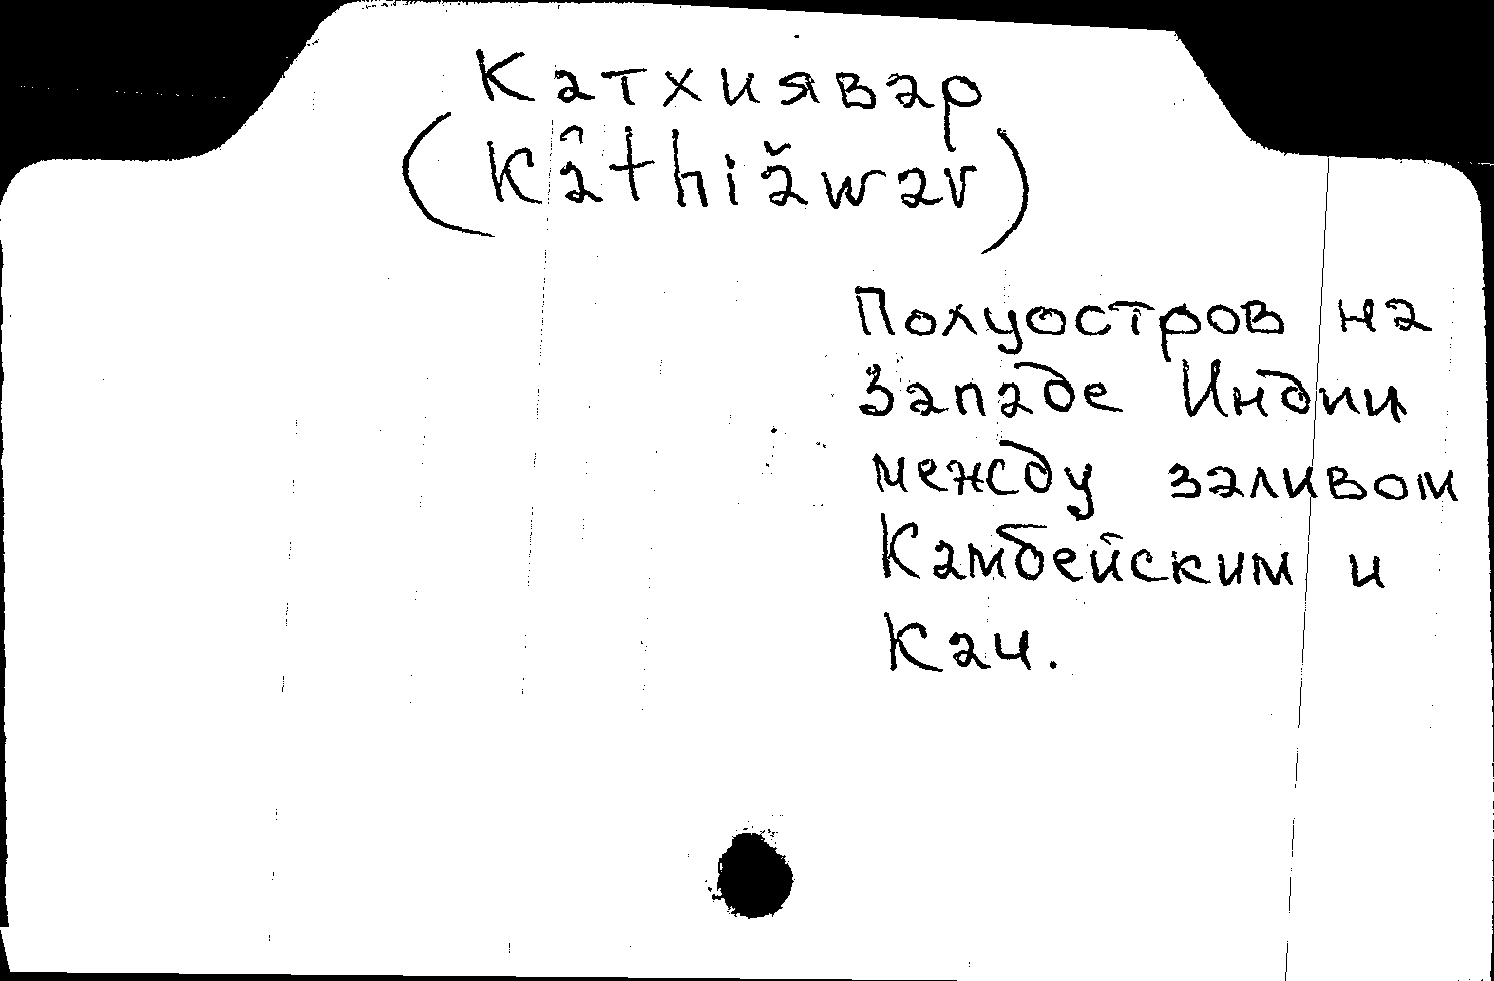 Катхиявар
(Kâthiăwar)
Полуостров на
Западе Индии
между заливом
Камбейским и
Кач.